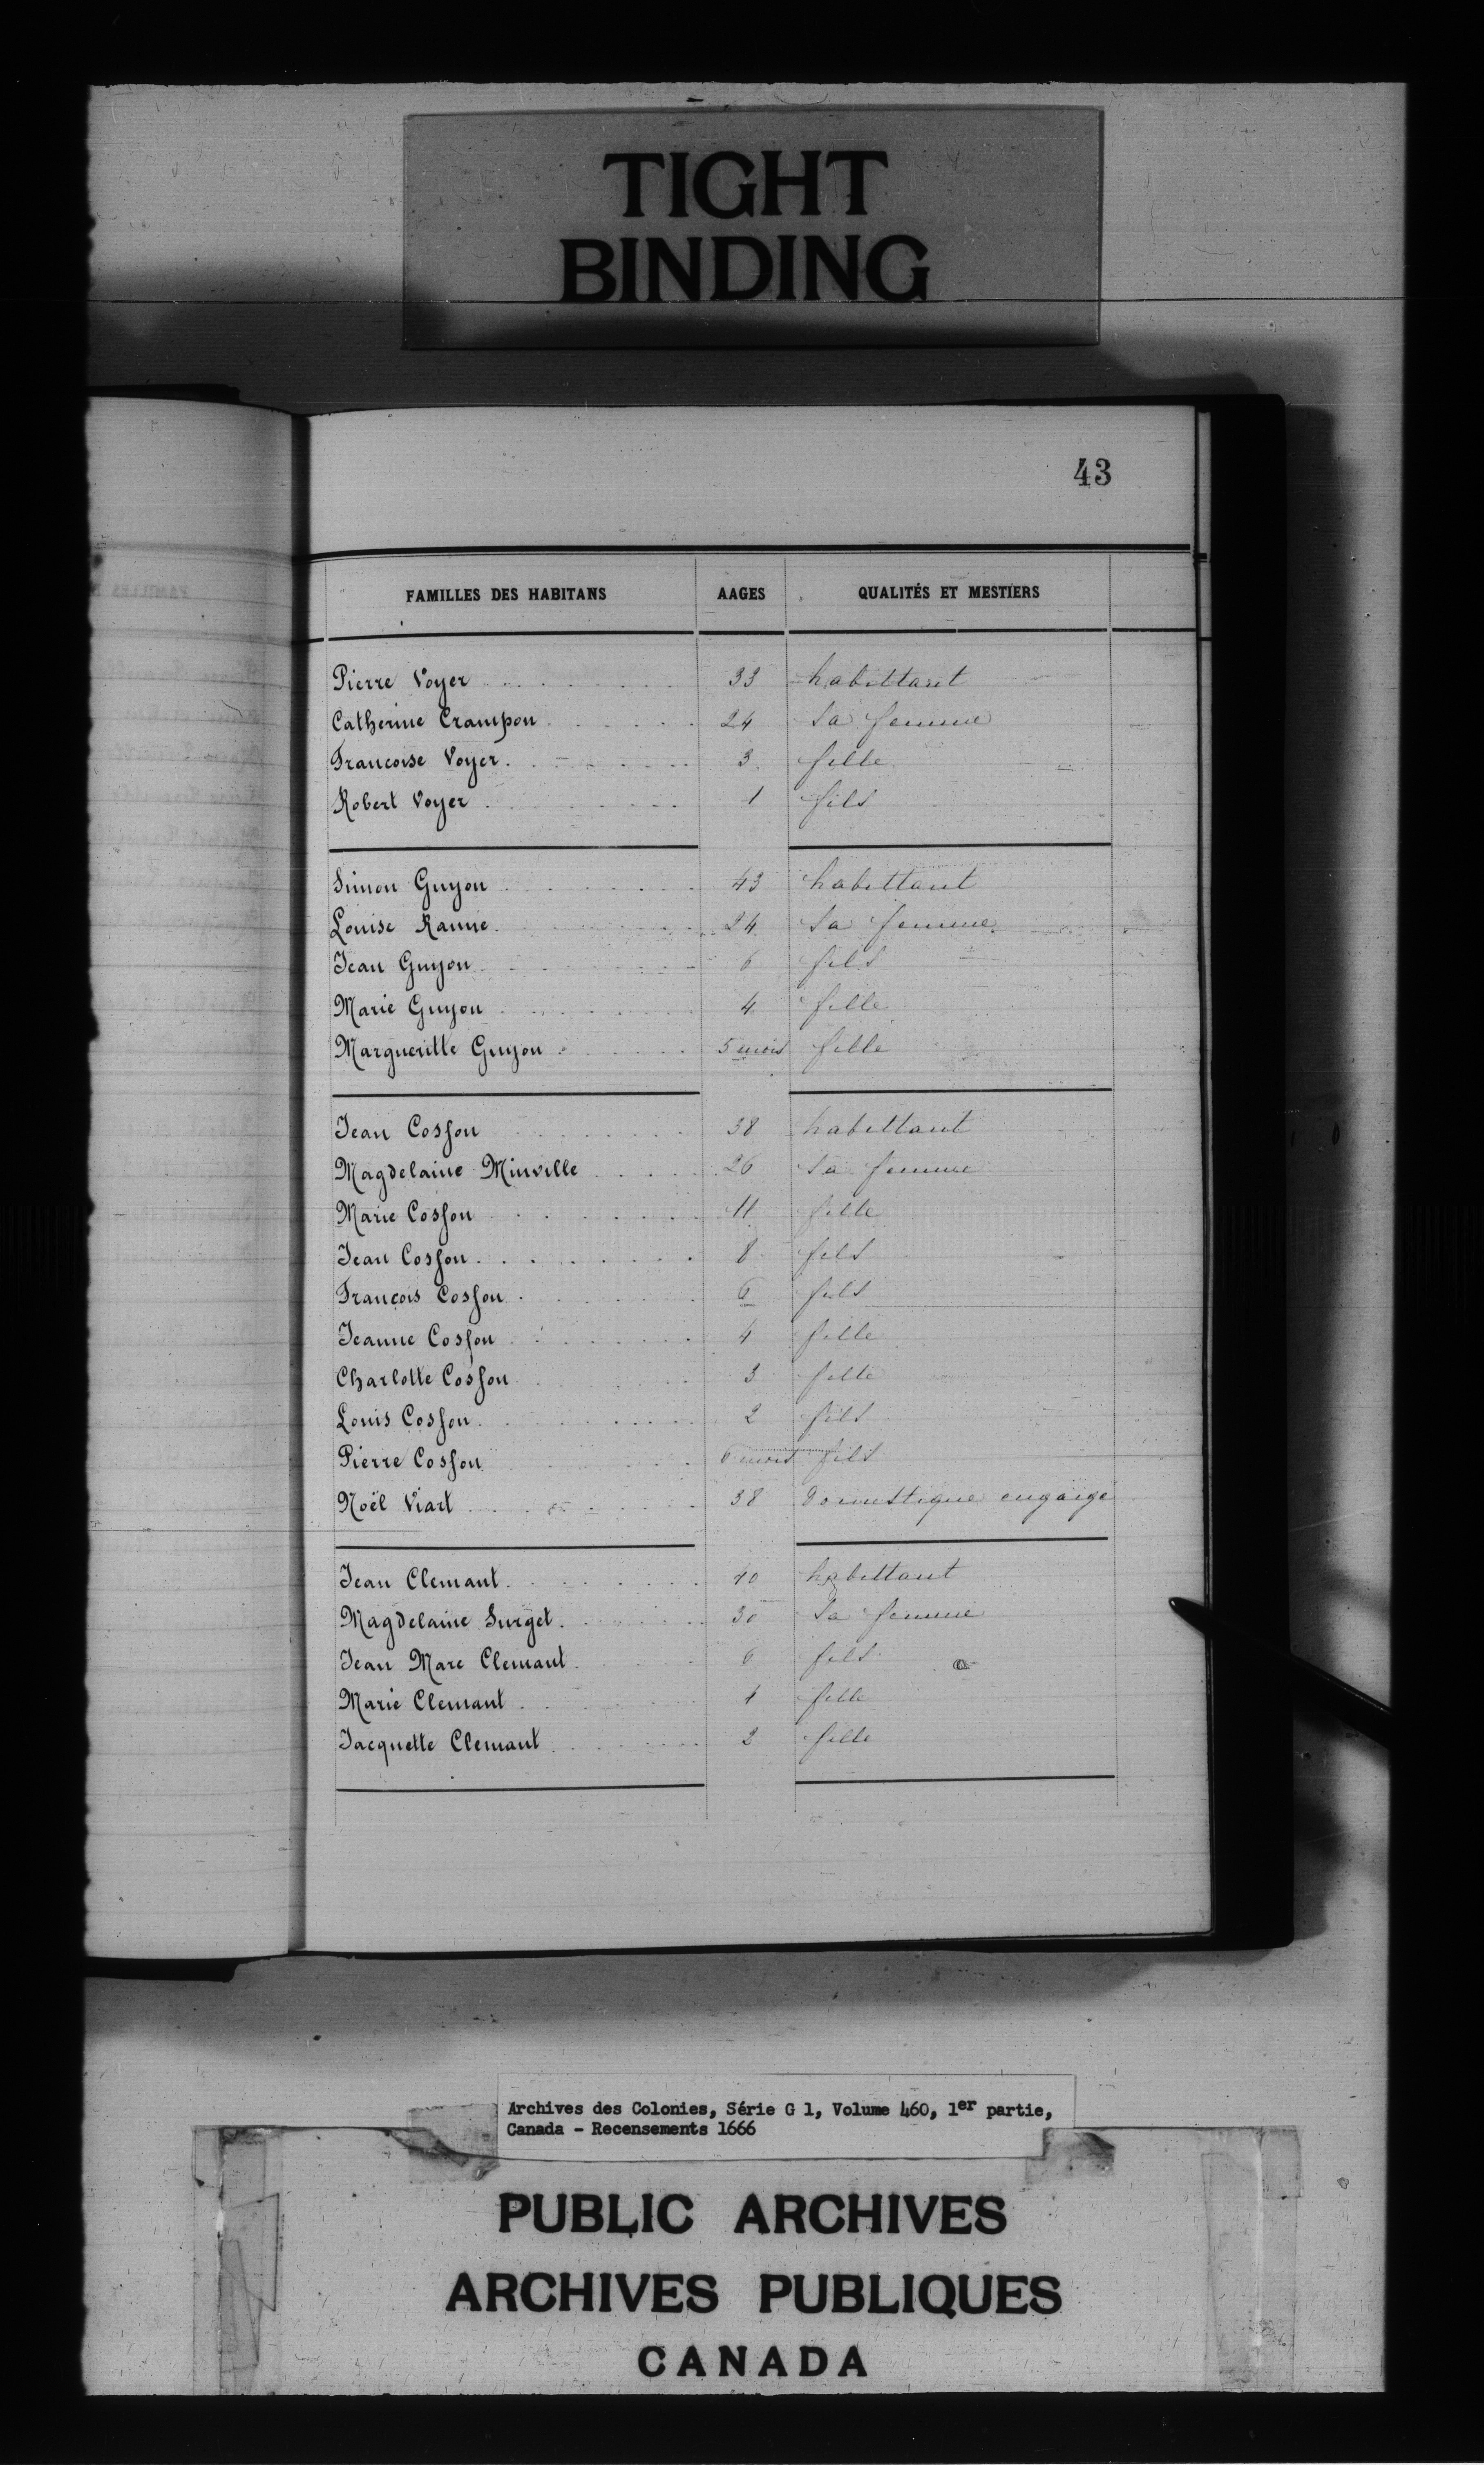 TIGHT
BINDING
43
FAMILLES DES HABITANS AAGES QUALITÉS ET MESTIERS
Pierre Voyer 33 habittant
Catherine Crampon 24 Sa femme
Francoise Voyer 3 fille
Robert Voyer 1 fils
Simon Guyon 43 habittant
Louise Racine 24 Sa femme
Jean Guyon 6 fils
Marie Guyon 4 fille
Margueritte Guyon 5 mois fille
Jean Cosson 38 habittant
Magdelaine Minville 26 Sa femme
Marie Cosson 11 fille
Jean Cosson 8 fils
François Cosson 6 fils
Jeanne Cosson 4 fille
Charlotte Cosson 3 fille
Louis Cosson 2 fils
Pierre Cosson 6 mois fils
Noël Viart 38 Domestique engaigé
Jean Clemant 40 habittant
Magdelaine Surget 30 Sa femme
Jean Marc Clemant 6 fils
Marie Clemant fille
Jacquette Clemant 2 fille
Archives des Colonies, Série G 1, Volume 460, 1er partie,
Canada - Recensements 1666
PUBLIC ARCHIVES
ARCHIVES PUBLIQUES
CANADA